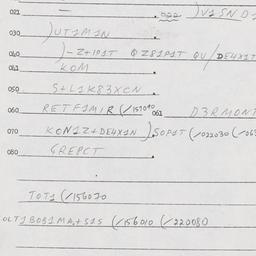 021 — . 022 )V1SND1
030 )UT1M1N
040 )-Z+1P1T QZ81P1T QU/DE4X1T
041 KOM .
050 S+L1K83XCN .
060 RETF1MIR (/157040 061 D3RMONT
070 KCN1Z+DE4X1N )SOP1T (/022030 (/063
080 GREPCT
TOT1 (/156070
OLT1BOB1MA,+S1S (/156010 (/220080